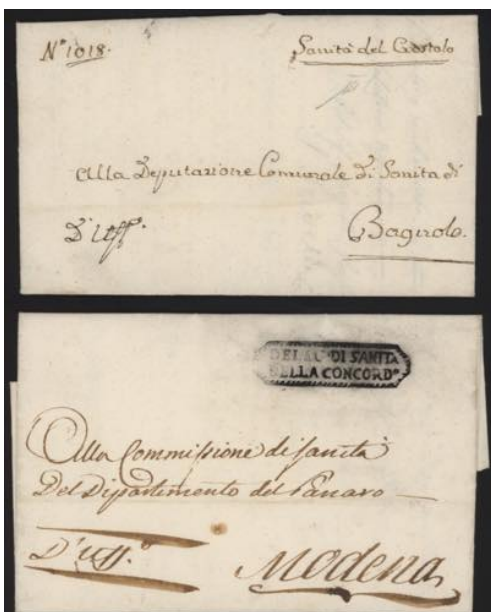 N.° 1018.
Sanità del Crostolo
Alla Deputazione Comunale di Sanita di
D'Uff.°
Bagnolo.
DI SANITA
DELLA CONCORD.ª
Alla Commissione di sanità
Del Dipartimento del Panaro
D'Uff.°
Modena